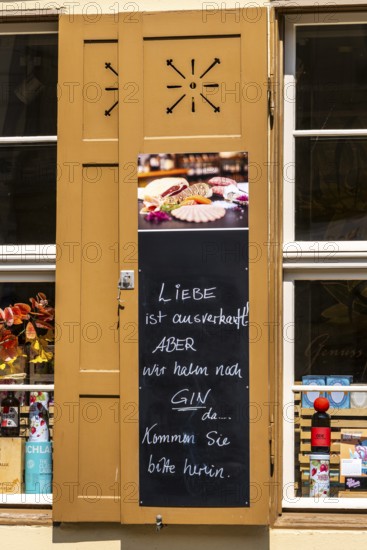 LIEBE
ist ausverkauft!
ABER
wir haben noch
GIN
da....
Kommen Sie
bitte herein.
Genuss
SCHLA